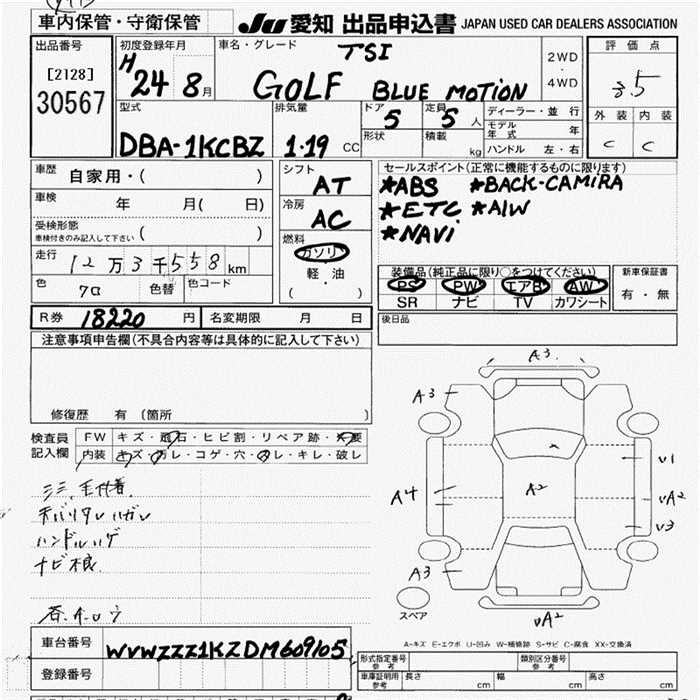 車内保管・守衛保管
JU 愛知 出品申込書 JAPAN USED CAR DEALERS ASSOCIATION
出品番号
[2128]
30567
初度登録年月
H 24 8月
車名・グレード
TSI
GOLF BLUE MOTION
2WD
・
4WD
評価点
3.5
外装 内装
C C
型式
DBA-1KCBZ
排気量
1.19 CC
ドア
5
定員
5 人
形状
積載
kg
ディーラー・並行
モデル年式 年
ハンドル 左・右
車歴 自家用・( )
車検 年 月( 日)
受検形態
車検付きのみ記入して下さい ( )
走行 12万3千558km
色 クロ 色替 色コード
シフト
AT
冷房
AC
燃料
ガソリン
軽・油
( )
セールスポイント(正常に機能するものに限ります)
★ABS ★BACK-CAMIRA
★ETC. ★A/W
★NAVi
装備品(純正品に限り○をつけてください)
PS PW エアB AW
SR ナビ TV カワシート
新車保証書
有・無
R券 18220 円 名変期限 月 日
後日品
注意事項申告欄(不具合内容等は具体的に記入して下さい)
修復歴 有 (箇所
検査員
記入欄
FW キズ・飛石・ヒビ割・リペア跡・要
内装 キズ・汚レ・コゲ・穴・スレ・キレ・破レ
ハンドルハゲ
A3
A3
V1
A4
A2
VA2
V3
A3
VA2
スペア
A-キズ E-エクボ U-凹み W-補修跡 S-サビ C-腐食 XX-交換済
車台番号 WVWZZZ1KZDM609105
登録番号
形式指定番号
参考
類別区分番号
参考
車庫証明用
参考
長さ cm 幅 cm 高さ cm